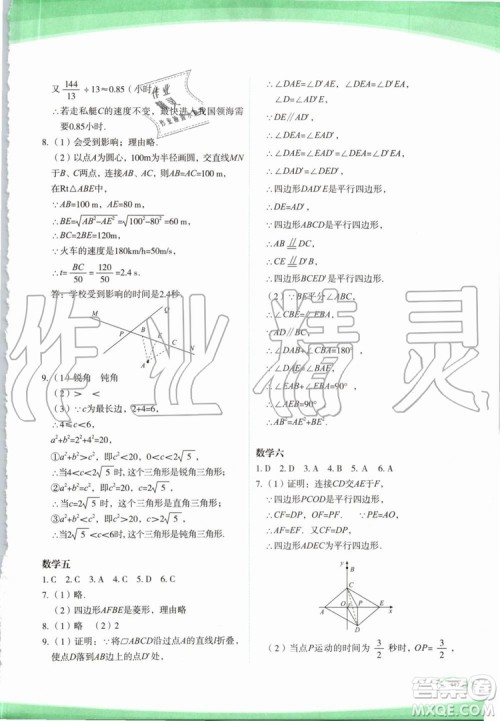 又144/13÷13≈0.85（小时）
∴若走私艇C的速度不变，最快进入我国领海需
要0.85小时.
8.（1）会受到影响；理由略.
（2）以点A为圆心，100m为半径画圆，交直线MN
于B、C两点，连接AB、AC，作AE⊥MN于点E，
在Rt△ABE中
∵AB=100 m，AE=80 m，
∴BE=√AB²-AE²=√100²-80²=60 m，
∴BC=120m，
∵火车的速度是180km/h=50 m/s，
∴t=BC/50=120/50=2.4 s.
答：学校受到影响的时间是2.4秒.
M Q P B E C N A
9.（1）锐角 钝角
（2）> <
（3）∵c为最长边，2+4=6，
∴4≤c<6，
a²+b²=2²+4²=20，
①a²+b²>c²，即c²<20，0<c<2√5，
∴当4≤c<2√5时，这个三角形是锐角三角形；
②a²+b²=c²，即c²=20，c=2√5，
∴当c=2√5时，这个三角形是直角三角形；
③a²+b²<c²，即c²>20，c>2√5，
∴当2√5<c<6时，这个三角形是钝角三角形.
数学五
1. C 2. C 3. A 4. C 5. D 6. C
7.（1）略.
（2）四边形AFBE是菱形，理由略
8.（1）略 （2）2
9.（1）证明：∵将▱ABCD沿过点A的直线l折叠，
使点D落到AB边上的点D′处，
∴∠DAE=∠D′AE，∠DEA=∠D′EA，
∠D=∠AD′E，
∵DE∥AD′，
∴∠DEA=∠EAD′，
∴∠DAE=∠EAD′=∠DEA=∠D′EA，
∴∠DAD′=∠DED′，
∴四边形DAD′E是平行四边形，
∴DE=AD′，
∵四边形ABCD是平行四边形，
∴AB∥DC，
∴CE∥D′B，
∴四边形BCED′是平行四边形；
（2）∵BE平分∠ABC，
∴∠CBE=∠EBA，
∵AD∥BC，
∴∠DAB+∠CBA=180°，
∵∠DAE=∠BAE，
∴∠EAB+∠EBA=90°，
∴∠AEB=90°，
∴AB²=AE²+BE².
数学六
1. D 2. D 3. A 4. D 5. A 6. A
7.（1）证明：连接CD交AE于F，
∵四边形PCOD是平行四边形，
∴CF=DF，OF=PF，
∵PE=AO，
∴AF=EF，又CF=DF，
∴四边形ADEC为平行四边形.
C A O P E D x
（2）当点P运动的时间为3/2秒时，OP=3/2，
作业精灵
答案圈